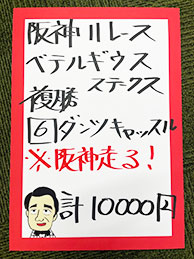 阪神11レース
ベテルギウス
ステークス
複勝
6 ダンツキャッスル
※阪神走る!
計10000円